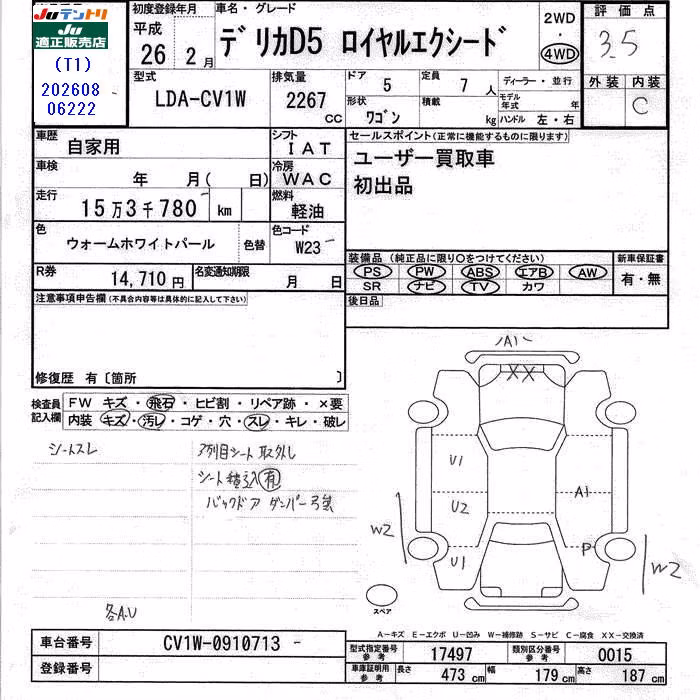 JUテントリ
JU
適正販売店
(T1)
202608
06222
初度登録年月
平成
26 2月
車名・グレード
デリカD5 ロイヤルエクシード
2WD
・
4WD
評価点
3.5
外装 内装
C
型式
LDA-CV1W
排気量
2267 CC
ドア
5
定員
7人
形状
ワゴン
積載
kg
ディーラー・並行
モデル年式 年
ハンドル 左・右
車歴
自家用
シフト
IAT
車検
年 月( 日)
冷房
WAC
走行
15万3千780 km
燃料
軽油
色
ウォームホワイトパール
色替
色コード
W23
R券
14,710円
名変通知期限
月 日
セールスポイント(正常に機能するものに限ります)
ユーザー買取車
初出品
装備品(純正品に限り〇をつけてください)
PS PW ABS エアB AW
SR ナビ TV カワ
新車保証書
有・無
後日品
注意事項申告欄(不具合内容等は具体的に記入して下さい)
修復歴 有〔箇所 〕
検査員記入欄
FW キズ・飛石・ヒビ割・リペア跡・×要
内装 キズ・汚レ・コゲ・穴・スレ・キレ・破レ
シートスレ
7列目シート取外し
シート積込有
バックドア ダンパー弱
各A.U
A1
XX
U1
U2
U1
A1
P
W2
W2
スペア
A-キズ E-エクボ U-凹み W-補修跡 S-サビ C-腐食 XX-交換済
車台番号
CV1W-0910713
登録番号
型式指定番号 参考
17497
類別区分番号 参考
0015
車庫証明用 参考
長さ 473cm
幅 179cm
高さ 187cm